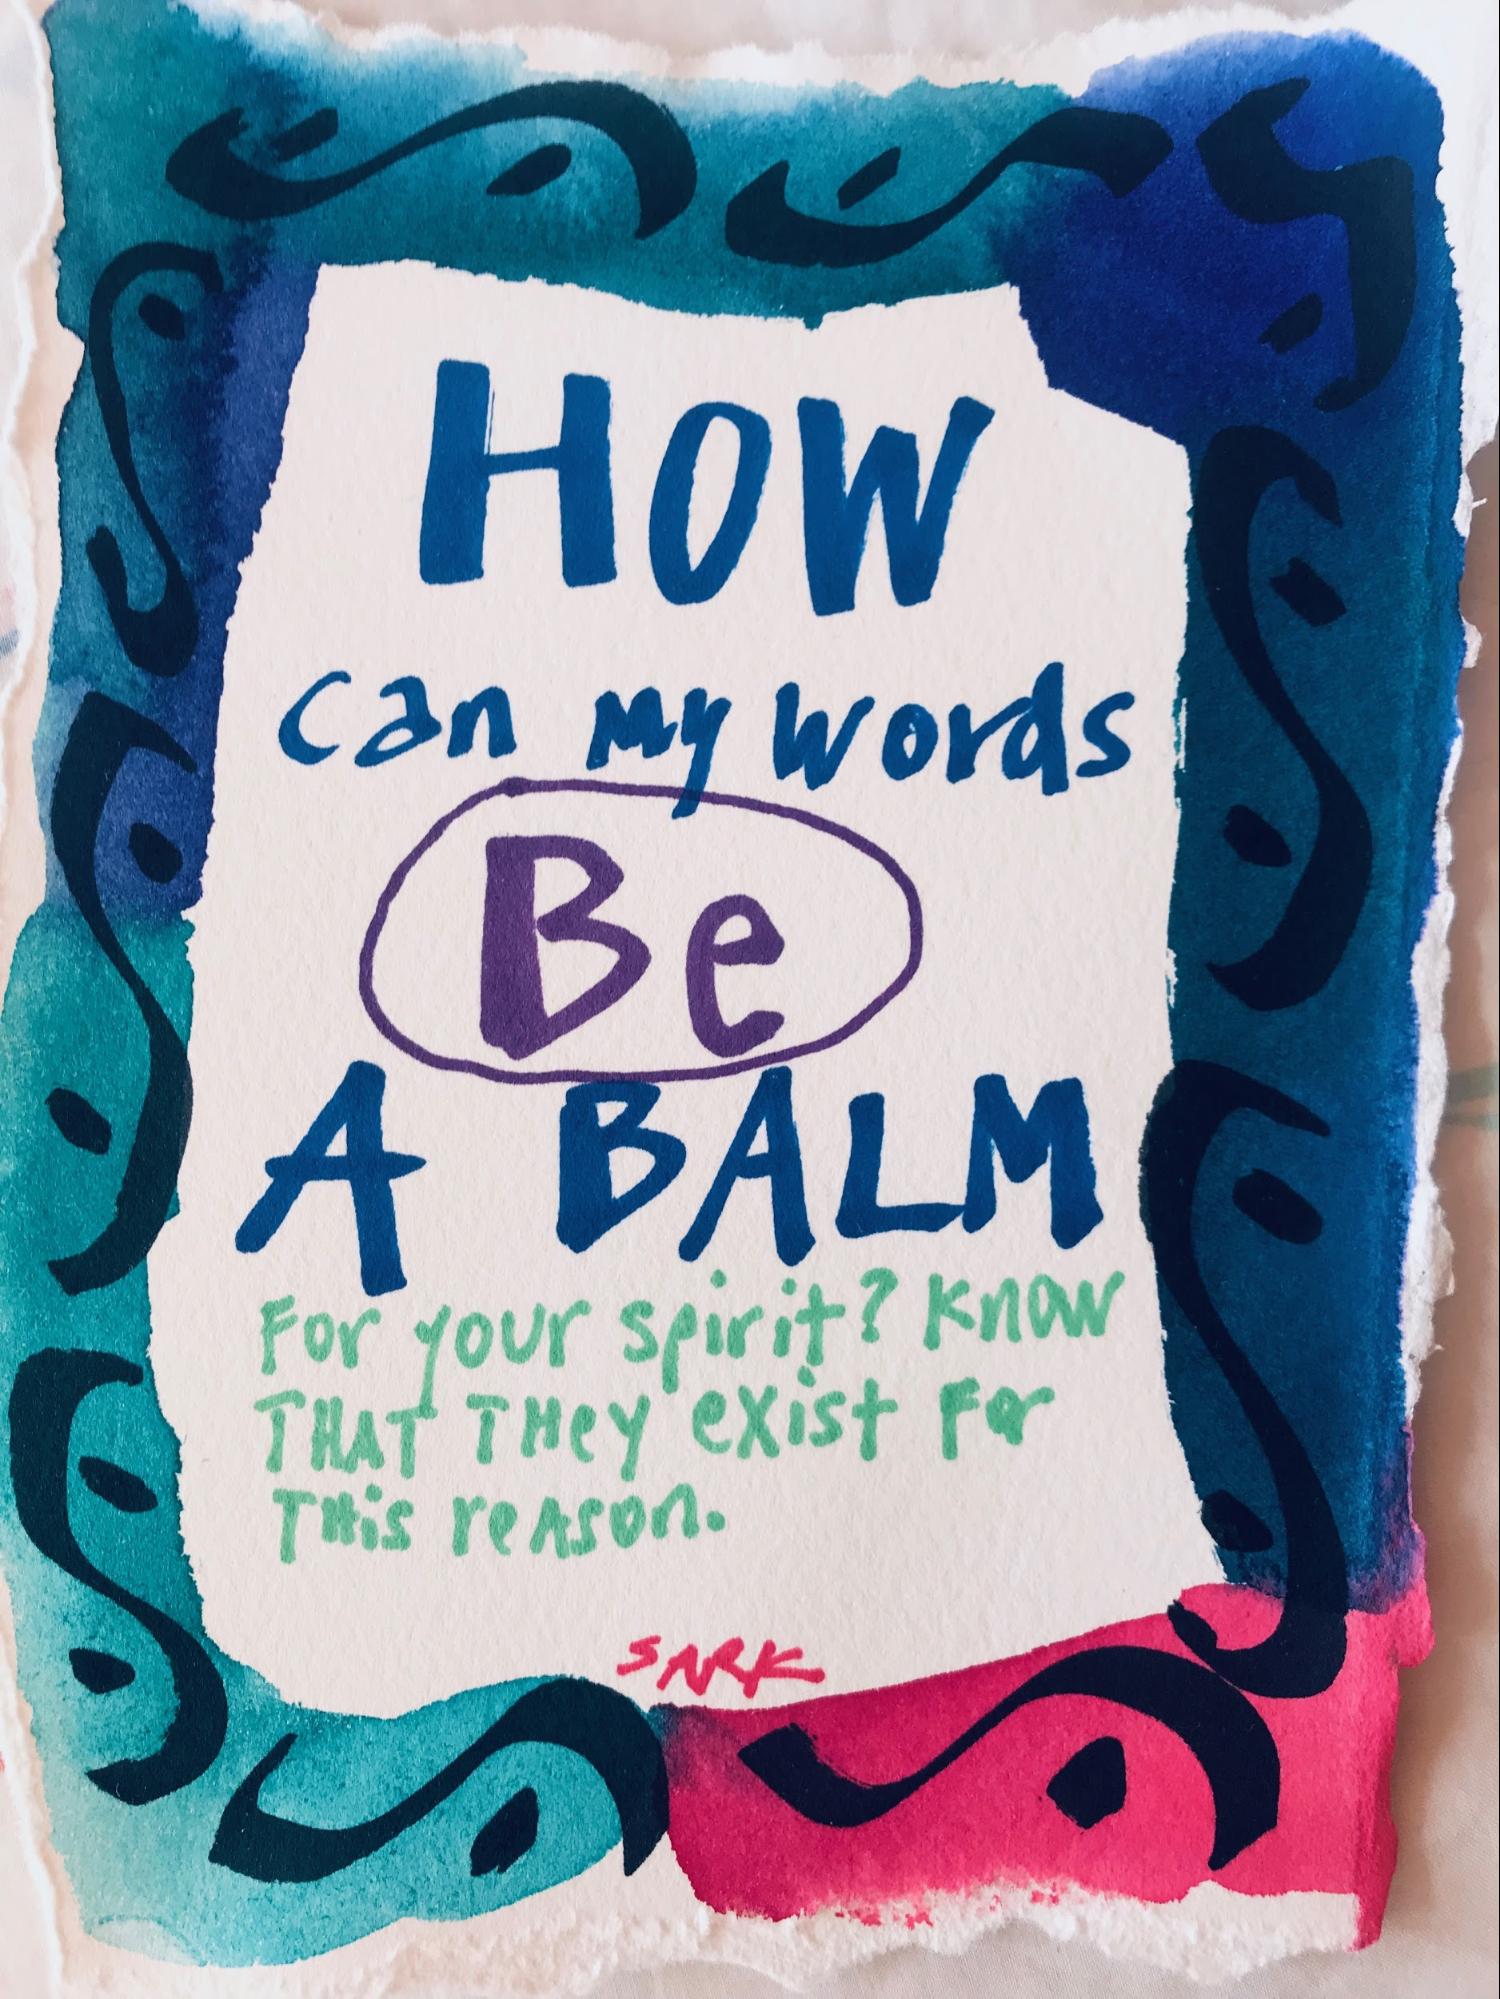 HOW
can my words
Be
A BALM
For your spirit? Know
THAT THey exist For
THis reason.
SARK